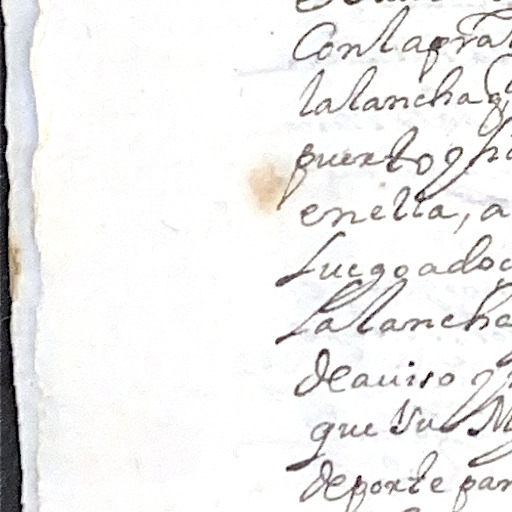 Con la pra
la lancha q
puerto y h
en ella, a
Luego ado
La lancha
de auiso y
que su M
de porte par